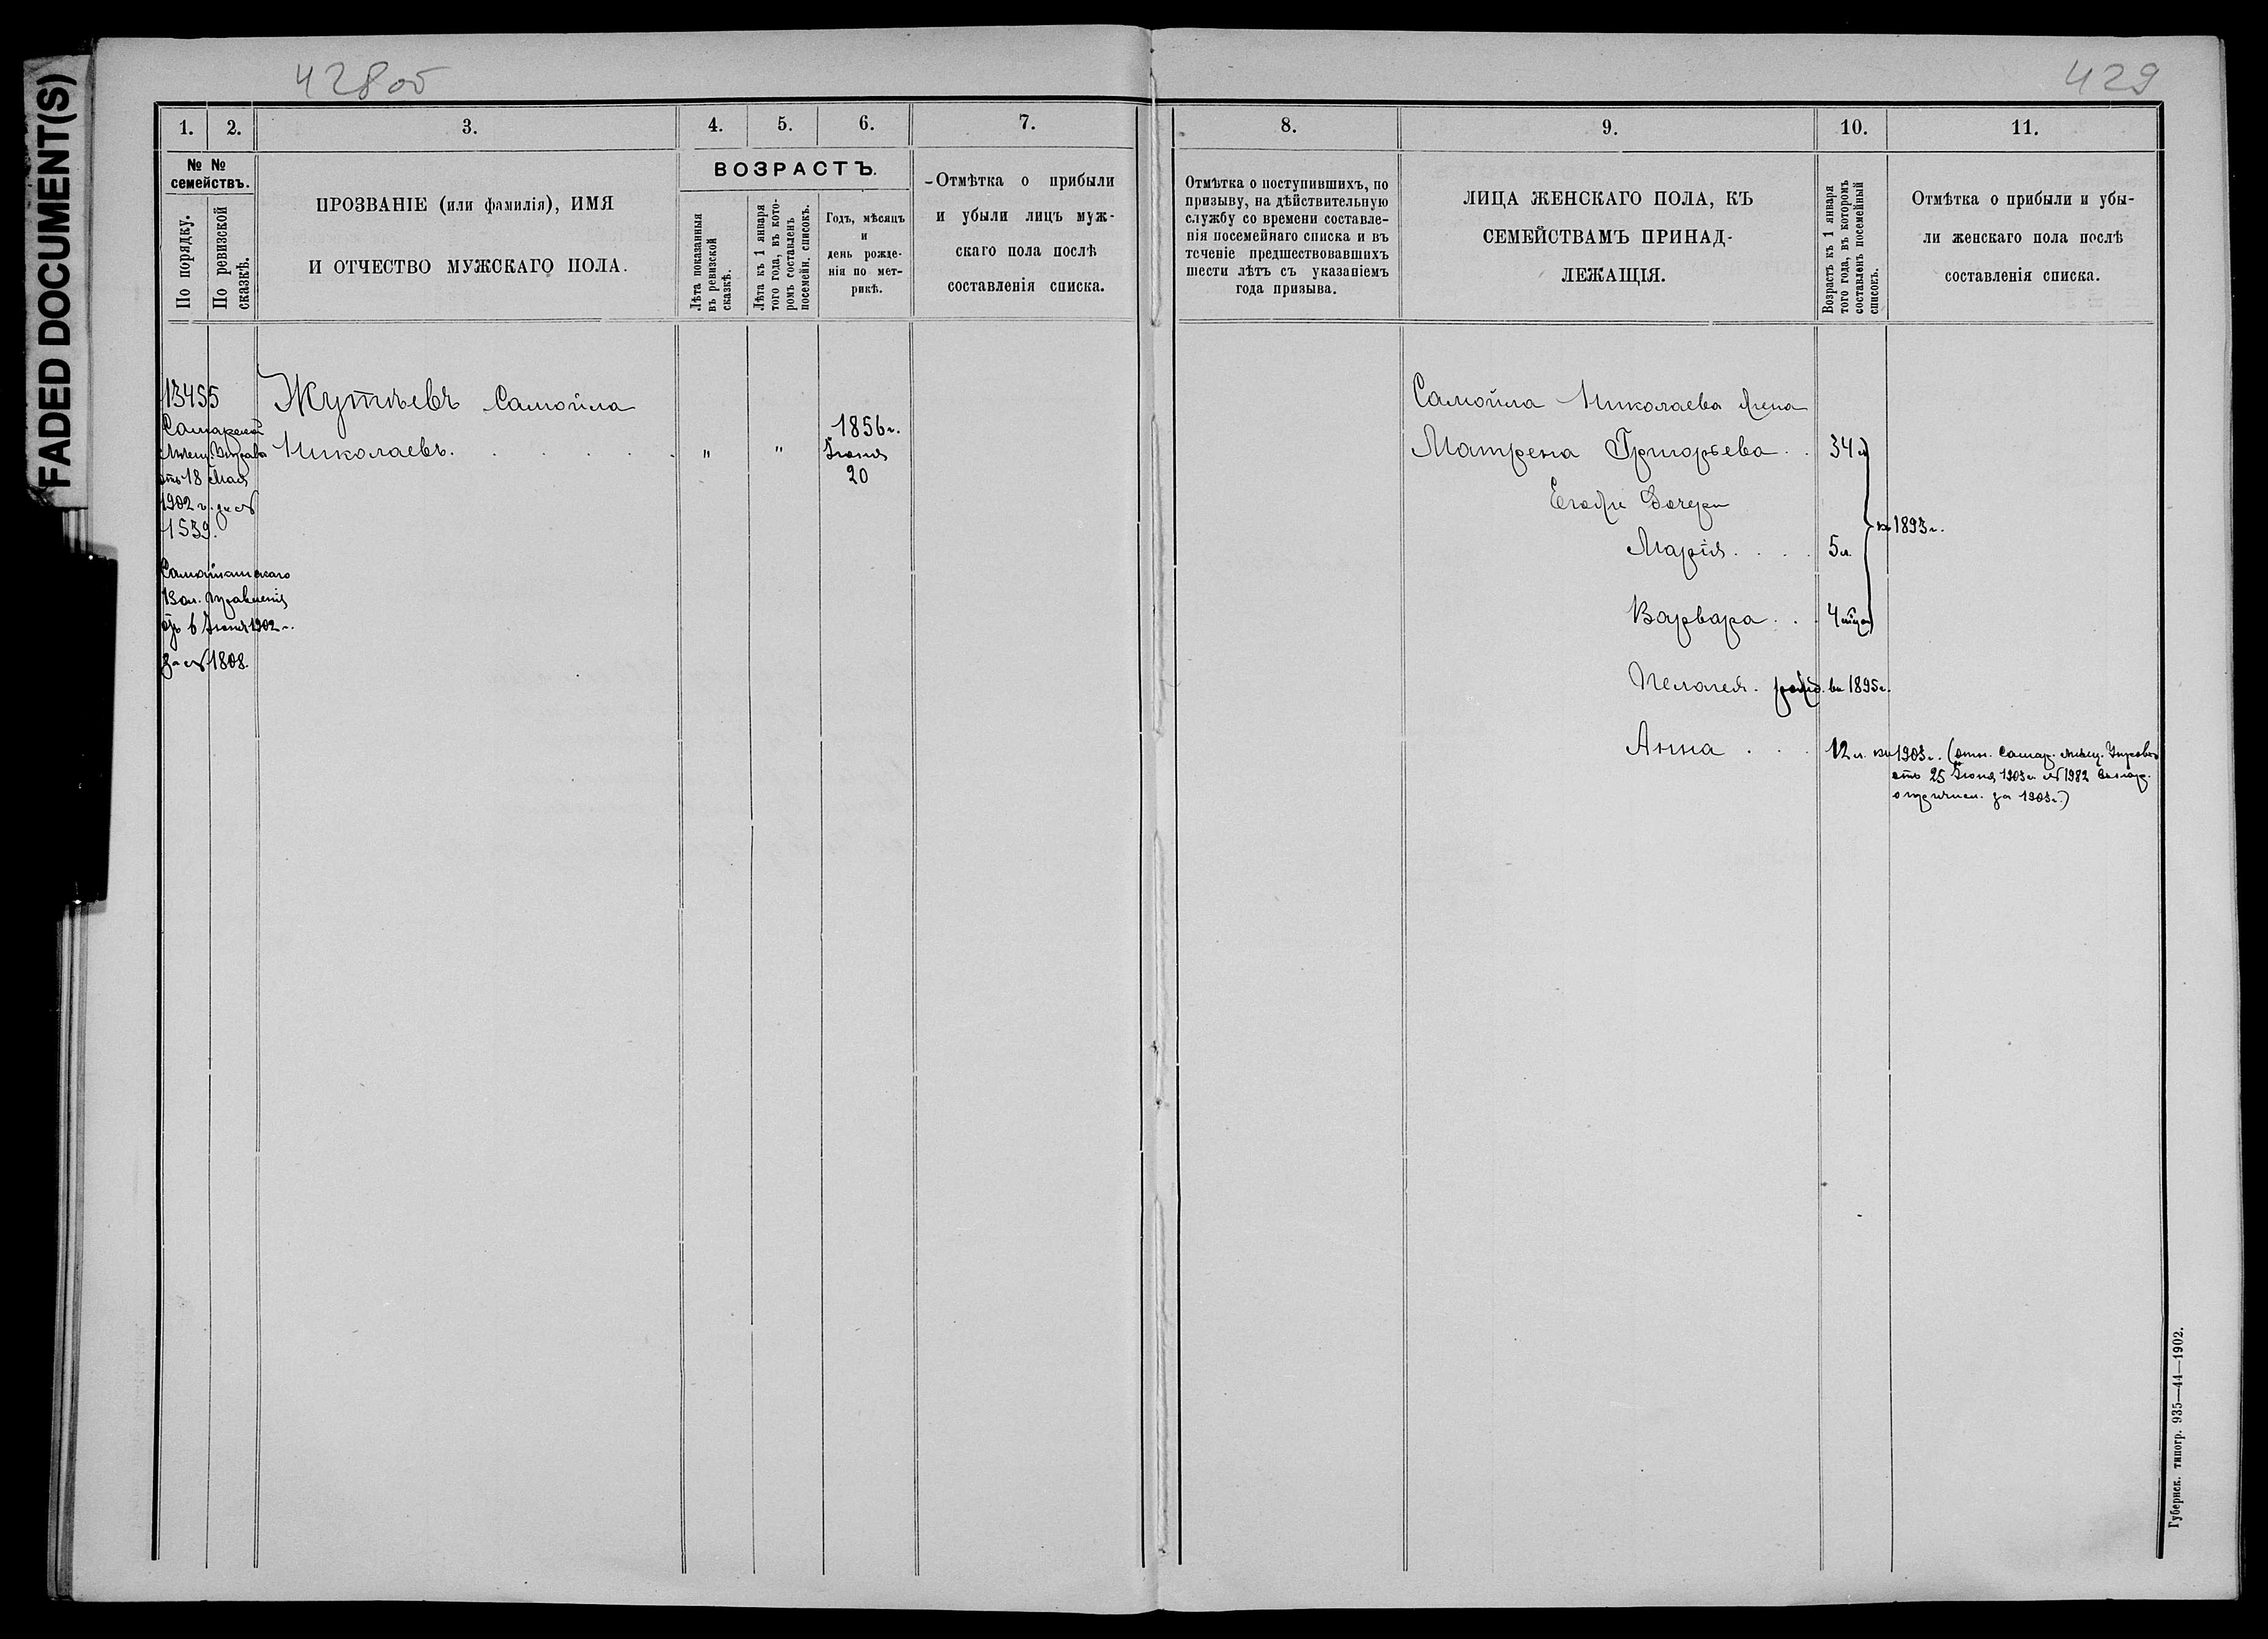 FADED DOCUMENT(S)
428об
429
1.
2.
3.
4.
5.
6.
7.
№ №
семействъ.
По порядку.
По ревизской
сказкѣ.
ПРОЗВАНІЕ (или фамилія), ИМЯ
И ОТЧЕСТВО МУЖСКАГО ПОЛА.
ВОЗРАСТЪ.
Лѣта показанныя
въ ревизской
сказкѣ.
Лѣта къ 1 января
того года, въ кото-
ромъ составленъ
посемейн. списокъ.
Годъ, мѣсяцъ
и
день рожде-
нія по мет-
рикѣ.
Отмѣтка о прибыли
и убыли лицъ муж-
скаго пола послѣ
составленія списка.
13455
Самарской
Мѣщ. Управы
отъ 18 Мая
1902 г. за №
1539.
Вол. Правленія
отъ 6 Іюня 1902 г.
за № 1808.
Жутяевъ Самойла
Николаевъ. . . . . .
"
"
1856 г.
Іюня
20
8.
9.
10.
11.
Отмѣтка о поступившихъ, по
призыву, на дѣйствительную
службу со времени составле-
нія посемейнаго списка и въ
теченіе предшествовавшихъ
шести лѣтъ съ указаніемъ
года призыва.
ЛИЦА ЖЕНСКАГО ПОЛА, КЪ
СЕМЕЙСТВАМЪ ПРИНАД-
ЛЕЖАЩІЯ.
Возрастъ къ 1 января
того года, въ которомъ
составленъ посемейный
списокъ.
Отмѣтка о прибыли и убы-
ли женскаго пола послѣ
составленія списка.
Самойла Николаева жена
Матрена Григорьева . . 34 л
Его же дочери
къ 1893 г.
Марія . . . . 5 л.
Варвара . . . 4 мѣца
Пелагея . рожд. въ 1895 г.
Анна . . . 12 л. къ 1903 г. (отн. Самар. Мѣщ. Управы
отъ 25 Іюня 1903 г. № 1982
о причисл. за 1903 г.)
Губернск. типогр. 935—44—1902.